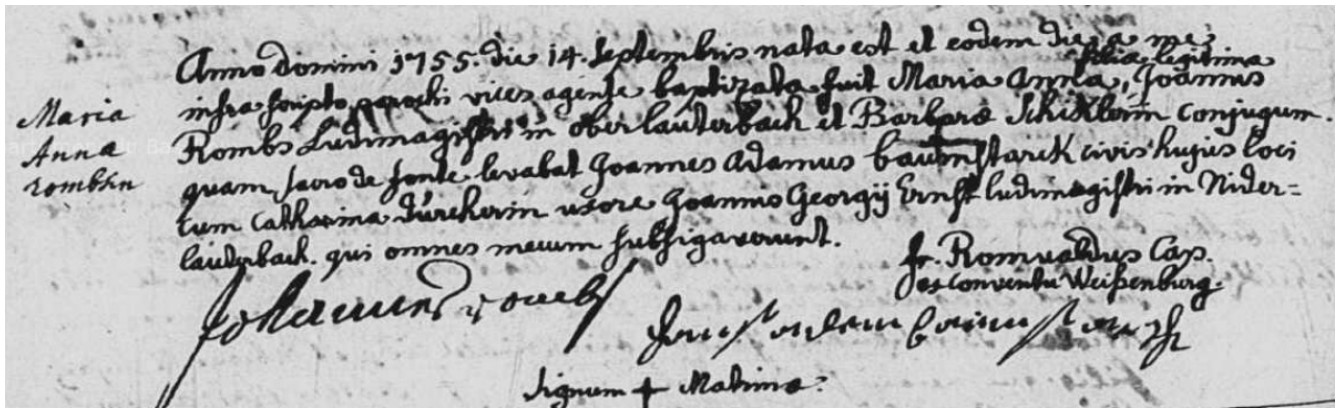 Maria
Anna
rombsin
Anno domini 1755. die 14. septembris nata est et eodem die a me
infra scripto parochi vices agente baptizata fuit Maria Anna, filia legitima Joannis
Rombs Ludimagistri in oberlauterbach et Barbarae Schiklerin conjugum.
quam sacro de fonte levabat Joannes Adamus baumstarck civis hujus loci
cum Catharina dürckerin uxore Joannis Georgij Ernst ludimagistri in Nider=
lauterbach. qui omnes mecum subsignaverunt.
fr. Romualdus Cap.
es conventu Weißenburg.
Johannes rombs
Hans adam baumstarck
signum + Matrinae.